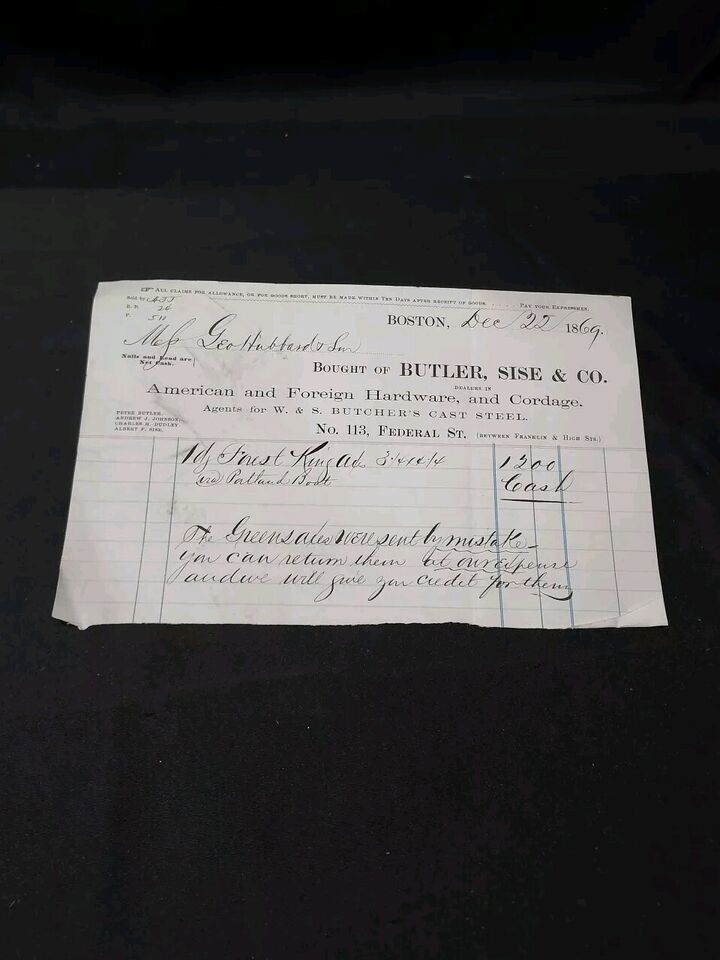 ☞ ALL CLAIMS FOR ALLOWANCE, OR FOR GOODS SHORT, MUST BE MADE WITHIN TEN DAYS AFTER RECEIPT OF GOODS. . . . . PAY YOUR EXPRESSMEN.
Sold by
26
P. 511
BOSTON, Dec 22 1869.
Geo Hubbard & Son
Nails and Lead are Net Cash.
BOUGHT OF BUTLER, SISE & CO.
DEALERS IN
American and Foreign Hardware, and Cordage.
Agents for W. & S. BUTCHER'S CAST STEEL.
No. 113, FEDERAL ST. (BETWEEN FRANKLIN & HIGH STS.)
PETER BUTLER,
ANDREW J. JOHNSON,
CHARLES H. DUPLEY,
ALBERT F. SISE,
Forest King 1200
Portland Boat Cash
The were sent by mistake
you can return them at our expense
and we will give you credit for them